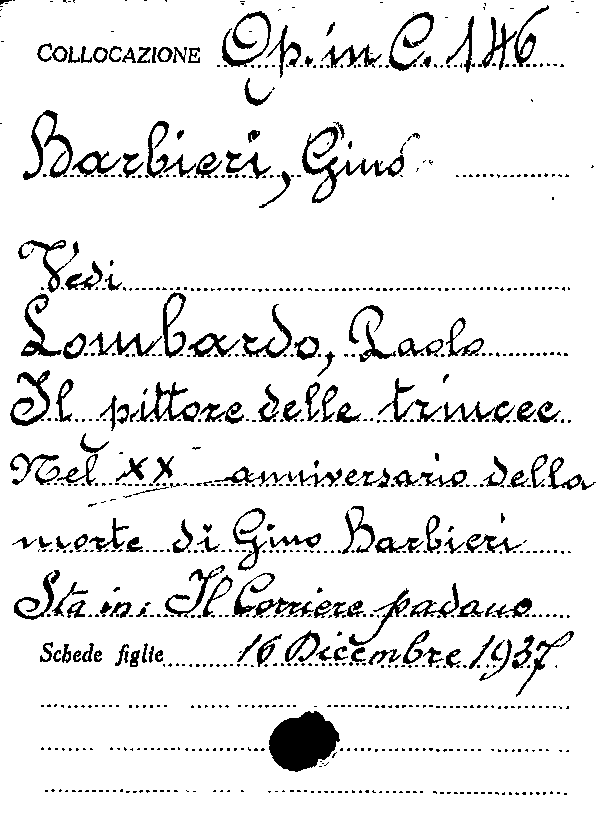 COLLOCAZIONE Op. in C. 146
Barbieri, Gino
Vedi
Lombardo, Paolo
Il pittore delle trincee
Nel XX anniversario della
morte di Gino Barbieri
Sta in: Il Corriere padano
Schede figlie 16 Dicembre 1937